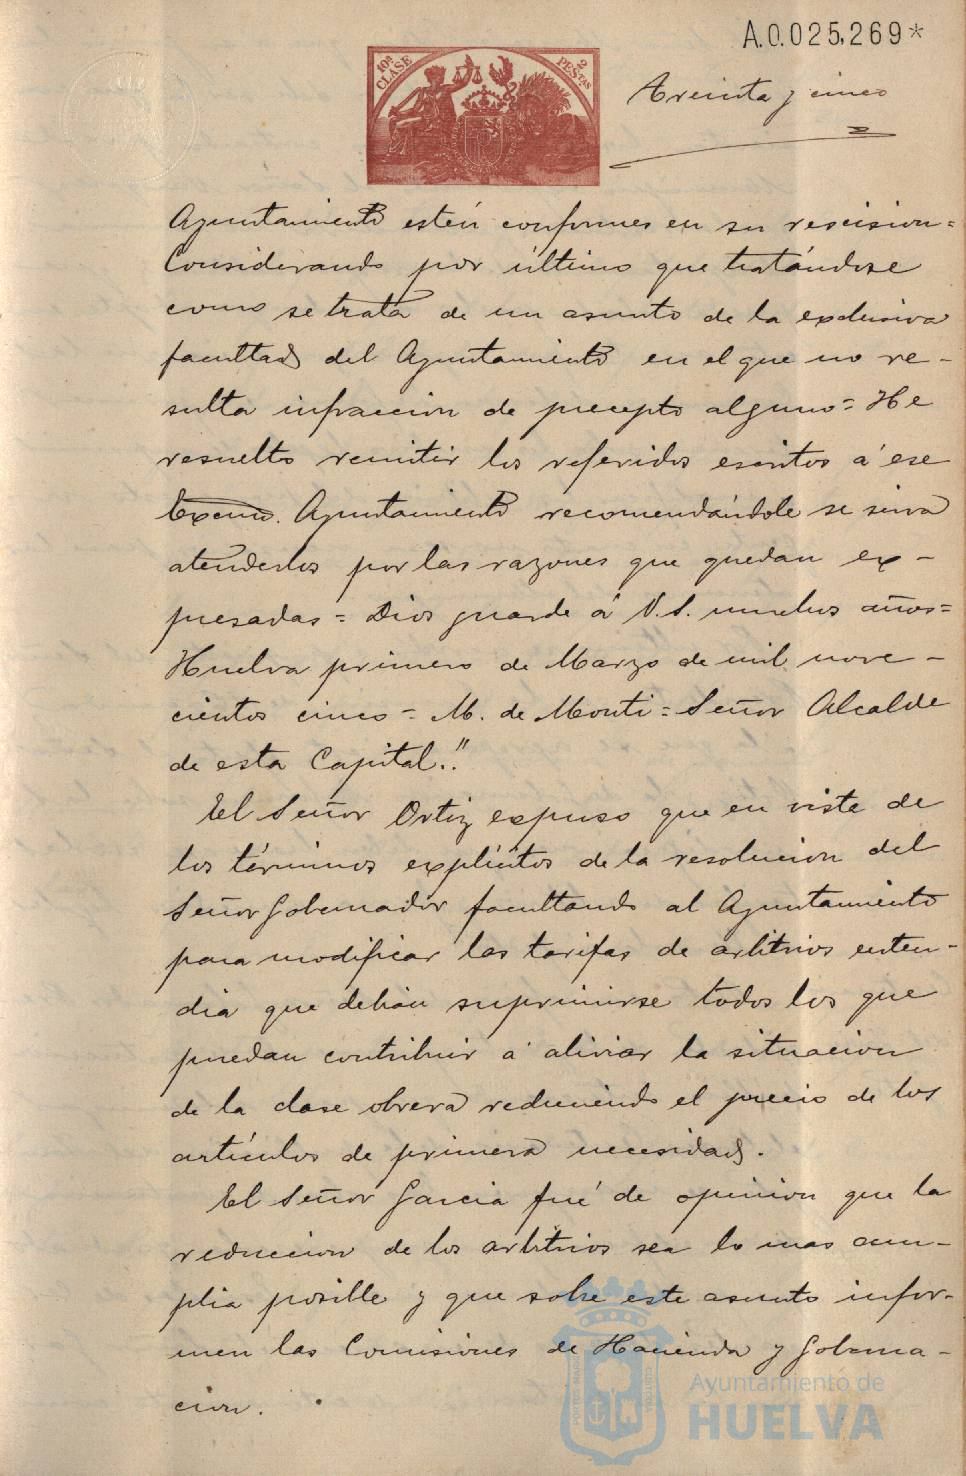 A.0.025,269*
10ª CLASE
2 PESTAS
Treinta y cinco
Ayuntamiento estén conformes en su rescision=
Considerando por último que tratándose
como se trata de un asunto de la exclusiva
facultad del Ayuntamiento en el que no re-
sulta infraccion de precepto alguno= He
resuelto remitir los referidos escritos á ese
Excmo. Ayuntamiento recomendándole se sirva
atenderlos por las razones que quedan ex-
presadas= Dios guarde á V.S. muchos años=
Huelva primero de Marzo de mil nove-
cientos cinco= M. de Monti= Señor Alcalde
de esta Capital."
El Señor Ortiz expuso que en vista de
los términos explícitos de la resolucion del
Señor Gobernador facultando al Ayuntamiento
para modificar las tarifas de arbitrios enten-
dia que debian suprimirse todos los que
puedan contribuir á aliviar la situacion
de la clase obrera reduciendo el precio de los
artículos de primera necesidad.
El Señor Garcia fué de opinion que la
reduccion de los arbitrios sea lo mas am-
plia posible y que sobre este asunto infor-
men las Comisiones de Hacienda y Goberna-
cion.
Ayuntamiento de
HUELVA